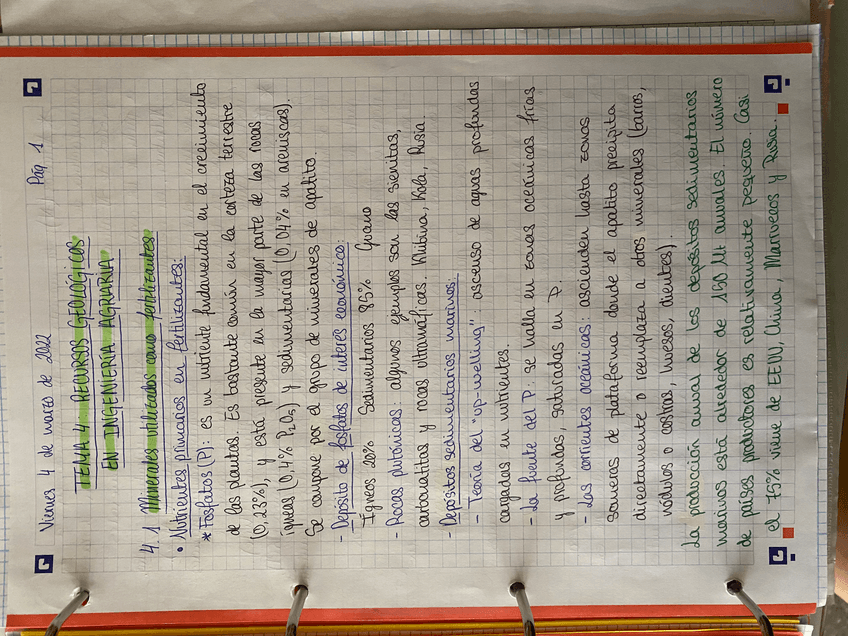 Viernes 4 de marzo de 2022 Pág 1
TEMA 4 RECURSOS GEOLÓGICOS
EN INGENIERIA AGRARIA
4.1 Minerales utilizados como fertilizantes
• Nutrientes primarios en fertilizantes:
* Fosfatos (P): es un nutriente fundamental en el crecimiento
de las plantas. Es bastante común en la corteza terrestre
(0,23%), y está presente en la mayor parte de las rocas
ígneas (0,4% P₂O₅) y sedimentarias (0,04% en areniscas).
Se compone por el grupo de minerales de apatito.
- Depósito de fosfatos de interés económico:
Ígneos 20% Sedimentarios 85% Guano
- Rocas plutónicas: algunos ejemplos son las sienitas,
carbonatitas y rocas ultramáficas. Khibina, Kola, Rusia.
- Depósitos sedimentarios marinos
- Teoría del "up-welling": ascenso de aguas profundas
cargadas en nutrientes.
- La fuente del P: se halla en zonas oceánicas frías
y profundas, saturadas en P.
- Las corrientes oceánicas: ascienden hasta zonas
someras de plataforma donde el apatito precipita
directamente o reemplaza a otros minerales (barros,
nódulos o costras, huesos, dientes).
La producción anual de los depósitos sedimentarios
marinos está alrededor de 150 Mt anuales. El número
de países productores es relativamente pequeño. Casi
el 75% viene de EEUU, China, Marruecos y Rusia.